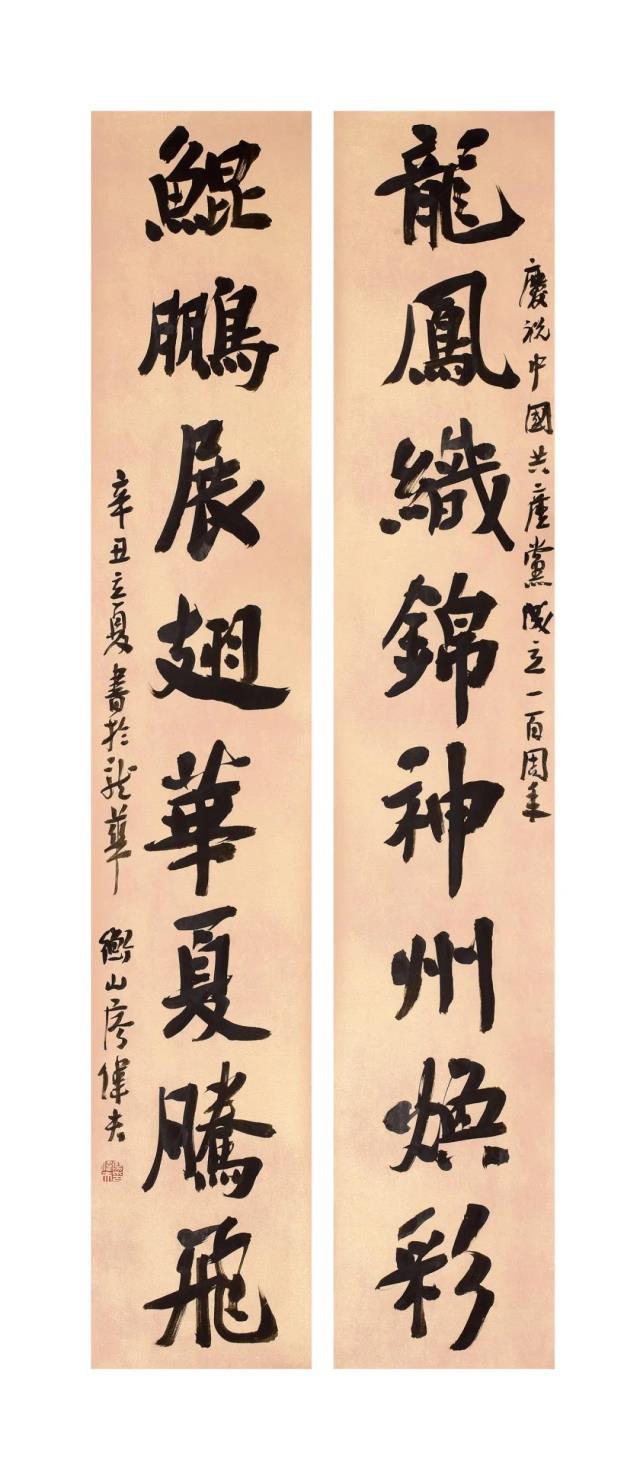 龍鳳織錦神州煥彩
慶祝中国共產黨成立一百周年
鯤鵬展翅華夏騰飛
辛丑立夏書於龍華
衡山廖偉夫